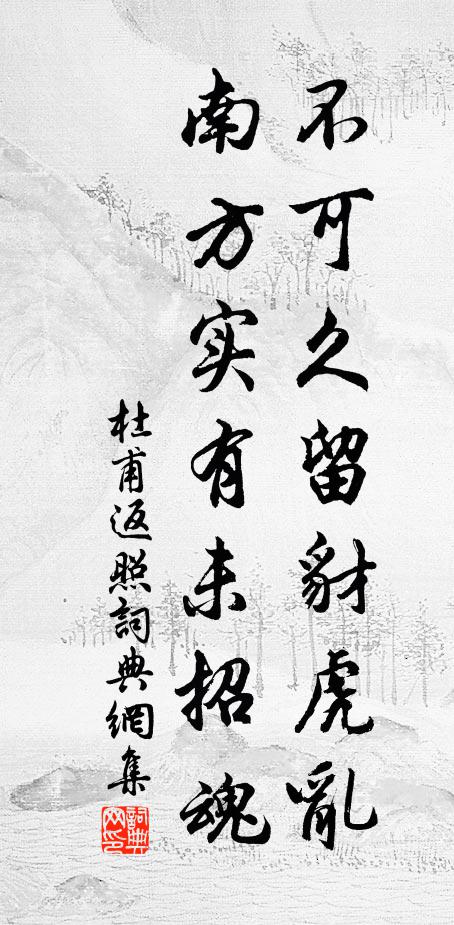 不可久留豺虎亂
南方实有未招魂
杜甫返照詞典網集
詞典网印